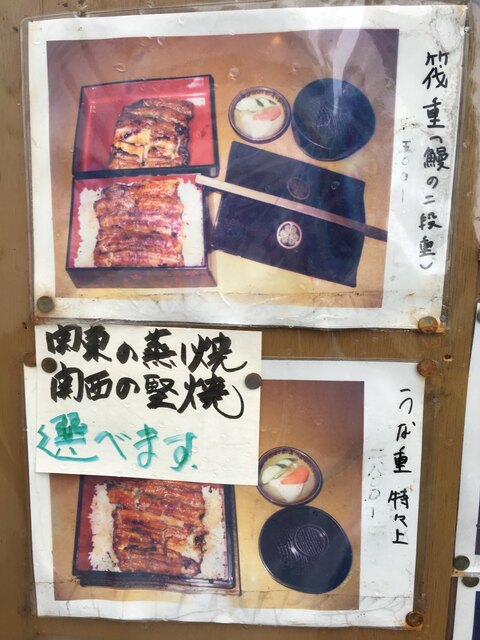 筏重(鰻の二段重)
関東の蒸し焼
関西の堅焼
選べます
うな重 特々上